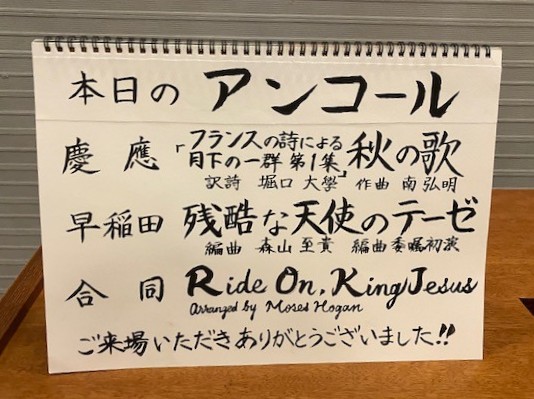 本日の アンコール
慶應 「フランスの詩による
月下の一群 第1集」 秋の歌
訳詩 堀口 大學 作曲 南 弘明
早稲田 残酷な天使のテーゼ
編曲 森山 至貴 編曲委嘱初演
合同 Ride On, King Jesus
Arranged by Moses Hogan
ご来場いただきありがとうございました!!